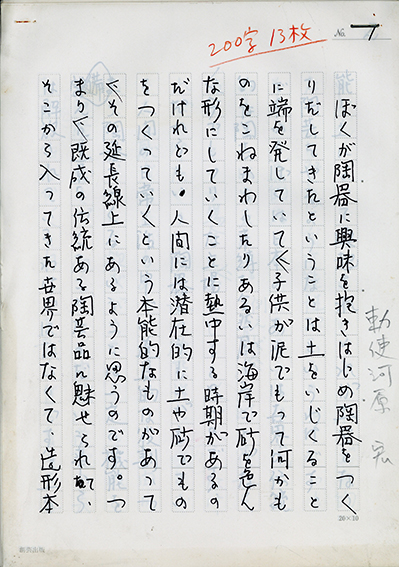 200字 13枚
No. 1
勅使河原 宏
ぼくが陶器に興味を抱きはじめ陶器をつく
りだしてきたということは土をいじくること
に端を発していて〈子供が泥でもって何かも
のをこねまわしたりあるいは海岸で砂を色ん
な形にしていくことに熱中する時期があるの
だけれども、人間には潜在的に土や砂でもの
をつくっていくという本能的なものがあって
〈その延長線上にあるように思うのです。つ
まり〈既成の伝統ある陶芸品に魅せられて、
そこから入ってきた世界ではなくて 造形本
20×10